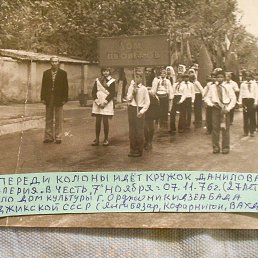 ДОМ
ПИОНЕРОВ
ПЕРЕДИ КОЛОНЫ ИДЁТ КРУЖОК ДАНИЛОВА
ЛЕРИЯ. В ЧЕСТЬ 7 НОЯБРЯ = 07.11.76 г.
ЛО ДОМ КУЛЬТУРЫ Г. ОРДЖОНИКИДЗЕАБАДА
ДЖИКСКОЙ ССР (ЯНГИБАЗАР, КОФАРНИГОН, ВАХД